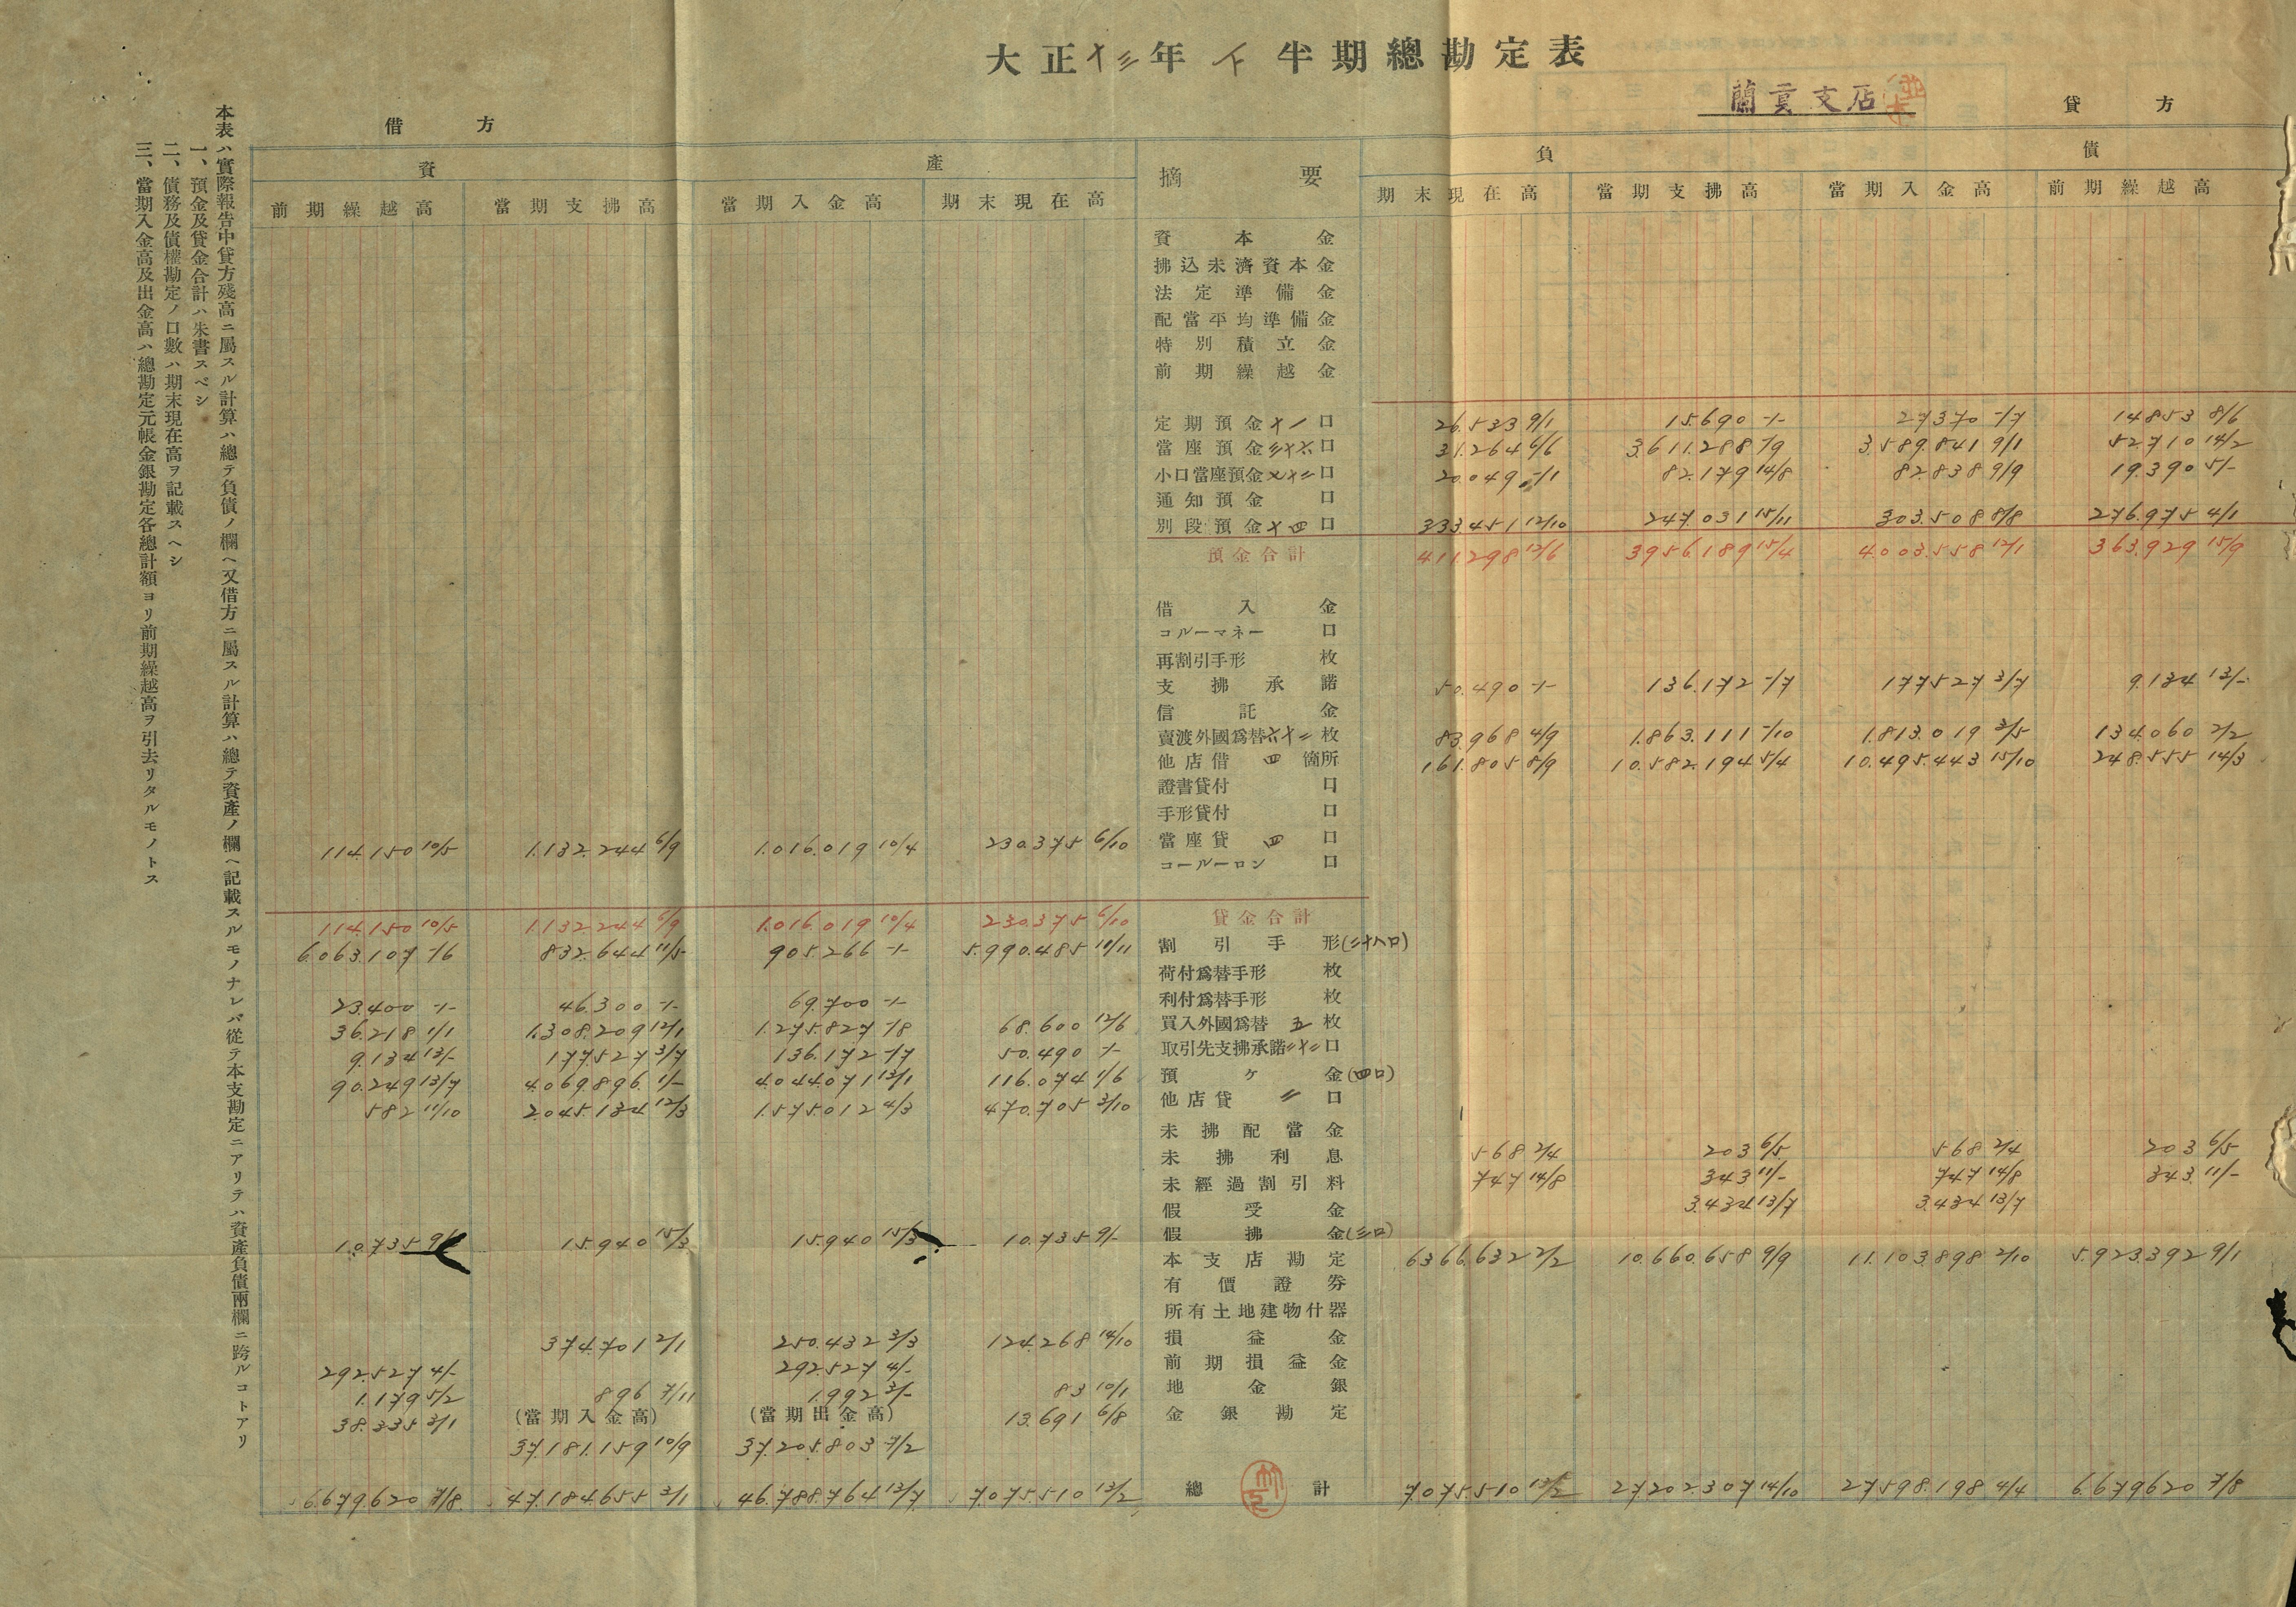 大正十三年下半期總勘定表
蘭貢支店
借方
貸方
資產
摘要
負債
前期繰越高 當期支拂高 當期入金高 期末現在高
期末現在高 當期支拂高 當期入金高 前期繰越高
資本金
拂込未濟資本金
法定準備金
配當平均準備金
特別積立金
前期繰越金
定期預金十一口 26.533 9/1 15.690 -/- 27370 -/7 14853 8/6
當座預金三十六口 31.264 6/6 3.611.288 7/9 3.589.841 9/1 52710 14/2
小口當座預金 口 20.049 -/1 82.179 14/8 82.838 9/9 19.390 5/-
通知預金 口
別段預金十四口 333.451 12/10 247.031 15/11 303.508 8/8 276.975 4/1
預金合計 411.298 12/6 3956.189 15/4 4.003.558 12/1 363.929 15/9
借入金
コルーマネー 口
再割引手形 枚
支拂承諾 50.490 -/- 136.172 -/7 177527 3/7 9.134 13/-
信託金
賣渡外國爲替六十二枚 83.968 4/9 1.863.111 -/10 1.813.019 3/5 134.060 2/2
他店借 四 箇所 161.805 8/9 10.582.194 5/4 10.495.443 15/10 248.555 14/3
證書貸付 口
手形貸付 口
114.150 10/5 1.132.244 6/9 1.016.019 10/4 230.375 6/10 當座貸 四 口
コールーロン 口
114.150 10/5 1.132.244 6/9 1.016.019 10/4 230.375 6/10 貸金合計
6.063.107 -/6 832.644 11/5 905.266 -/- 5.990.485 11/11 割引手形(三十八口)
荷付爲替手形 枚
23.400 -/- 46.300 -/- 69.700 -/- 利付爲替手形 枚
36.218 1/1 1.308.209 12/1 1.275.827 -/8 68.600 12/6 買入外國爲替 五 枚
9.134 13/- 177527 3/7 136.172 -/7 50.490 -/- 取引先支拂承諾二十二口
90.249 13/7 4.069.896 1/- 4.044.071 13/1 116.074 1/6 預ケ金(四口)
582 11/10 2.045.134 12/3 1.575.012 4/3 470.705 3/10 他店貸 二 口
未拂配當金
未拂利息 568 2/4 203 6/5 568 2/4 203 6/5
未經過割引料 747 14/8 343 11/- 747 14/8 343 11/-
假受金 3.434 13/7 3.434 13/7
10.735 9/- 15.940 15/3 15.940 15/3 10.735 9/- 假拂金(三口)
本支店勘定 6366.632 2/2 10.660.658 9/9 11.103.898 2/10 5.923.392 9/1
有價證券
所有土地建物什器
374.701 2/1 250.432 3/3 124.268 14/10 損益金
292.527 4/- 292.527 4/- 前期損益金
1.179 5/2 896 7/11 1.992 3/- 83 10/1 地金銀
38.335 3/1 (當期入金高) (當期出金高) 13.691 6/8 金銀勘定
37.181.159 10/9 37.205.803 7/2
6.679.620 7/8 47.184.655 3/1 46.788.764 13/7 7.075.510 13/2 總計 7075510 13/2 27202.307 14/10 27598.198 4/4 6.679620 7/8
本表ハ實際報告中貸方殘高ニ屬スル計算ハ總テ負債ノ欄ヘ又借方ニ屬スル計算ハ總テ資產ノ欄ヘ記載スルモノナレバ從テ本支勘定ニアリテハ資產負債兩欄ニ跨ルコトアリ
一、預金及貸金合計ハ朱書スベシ
二、債務及債權勘定ノ口數ハ期末現在高ヲ記載スヘシ
三、當期入金高及出金高ハ總勘定元帳金銀勘定各總計額ヨリ前期繰越高ヲ引去リタルモノトス